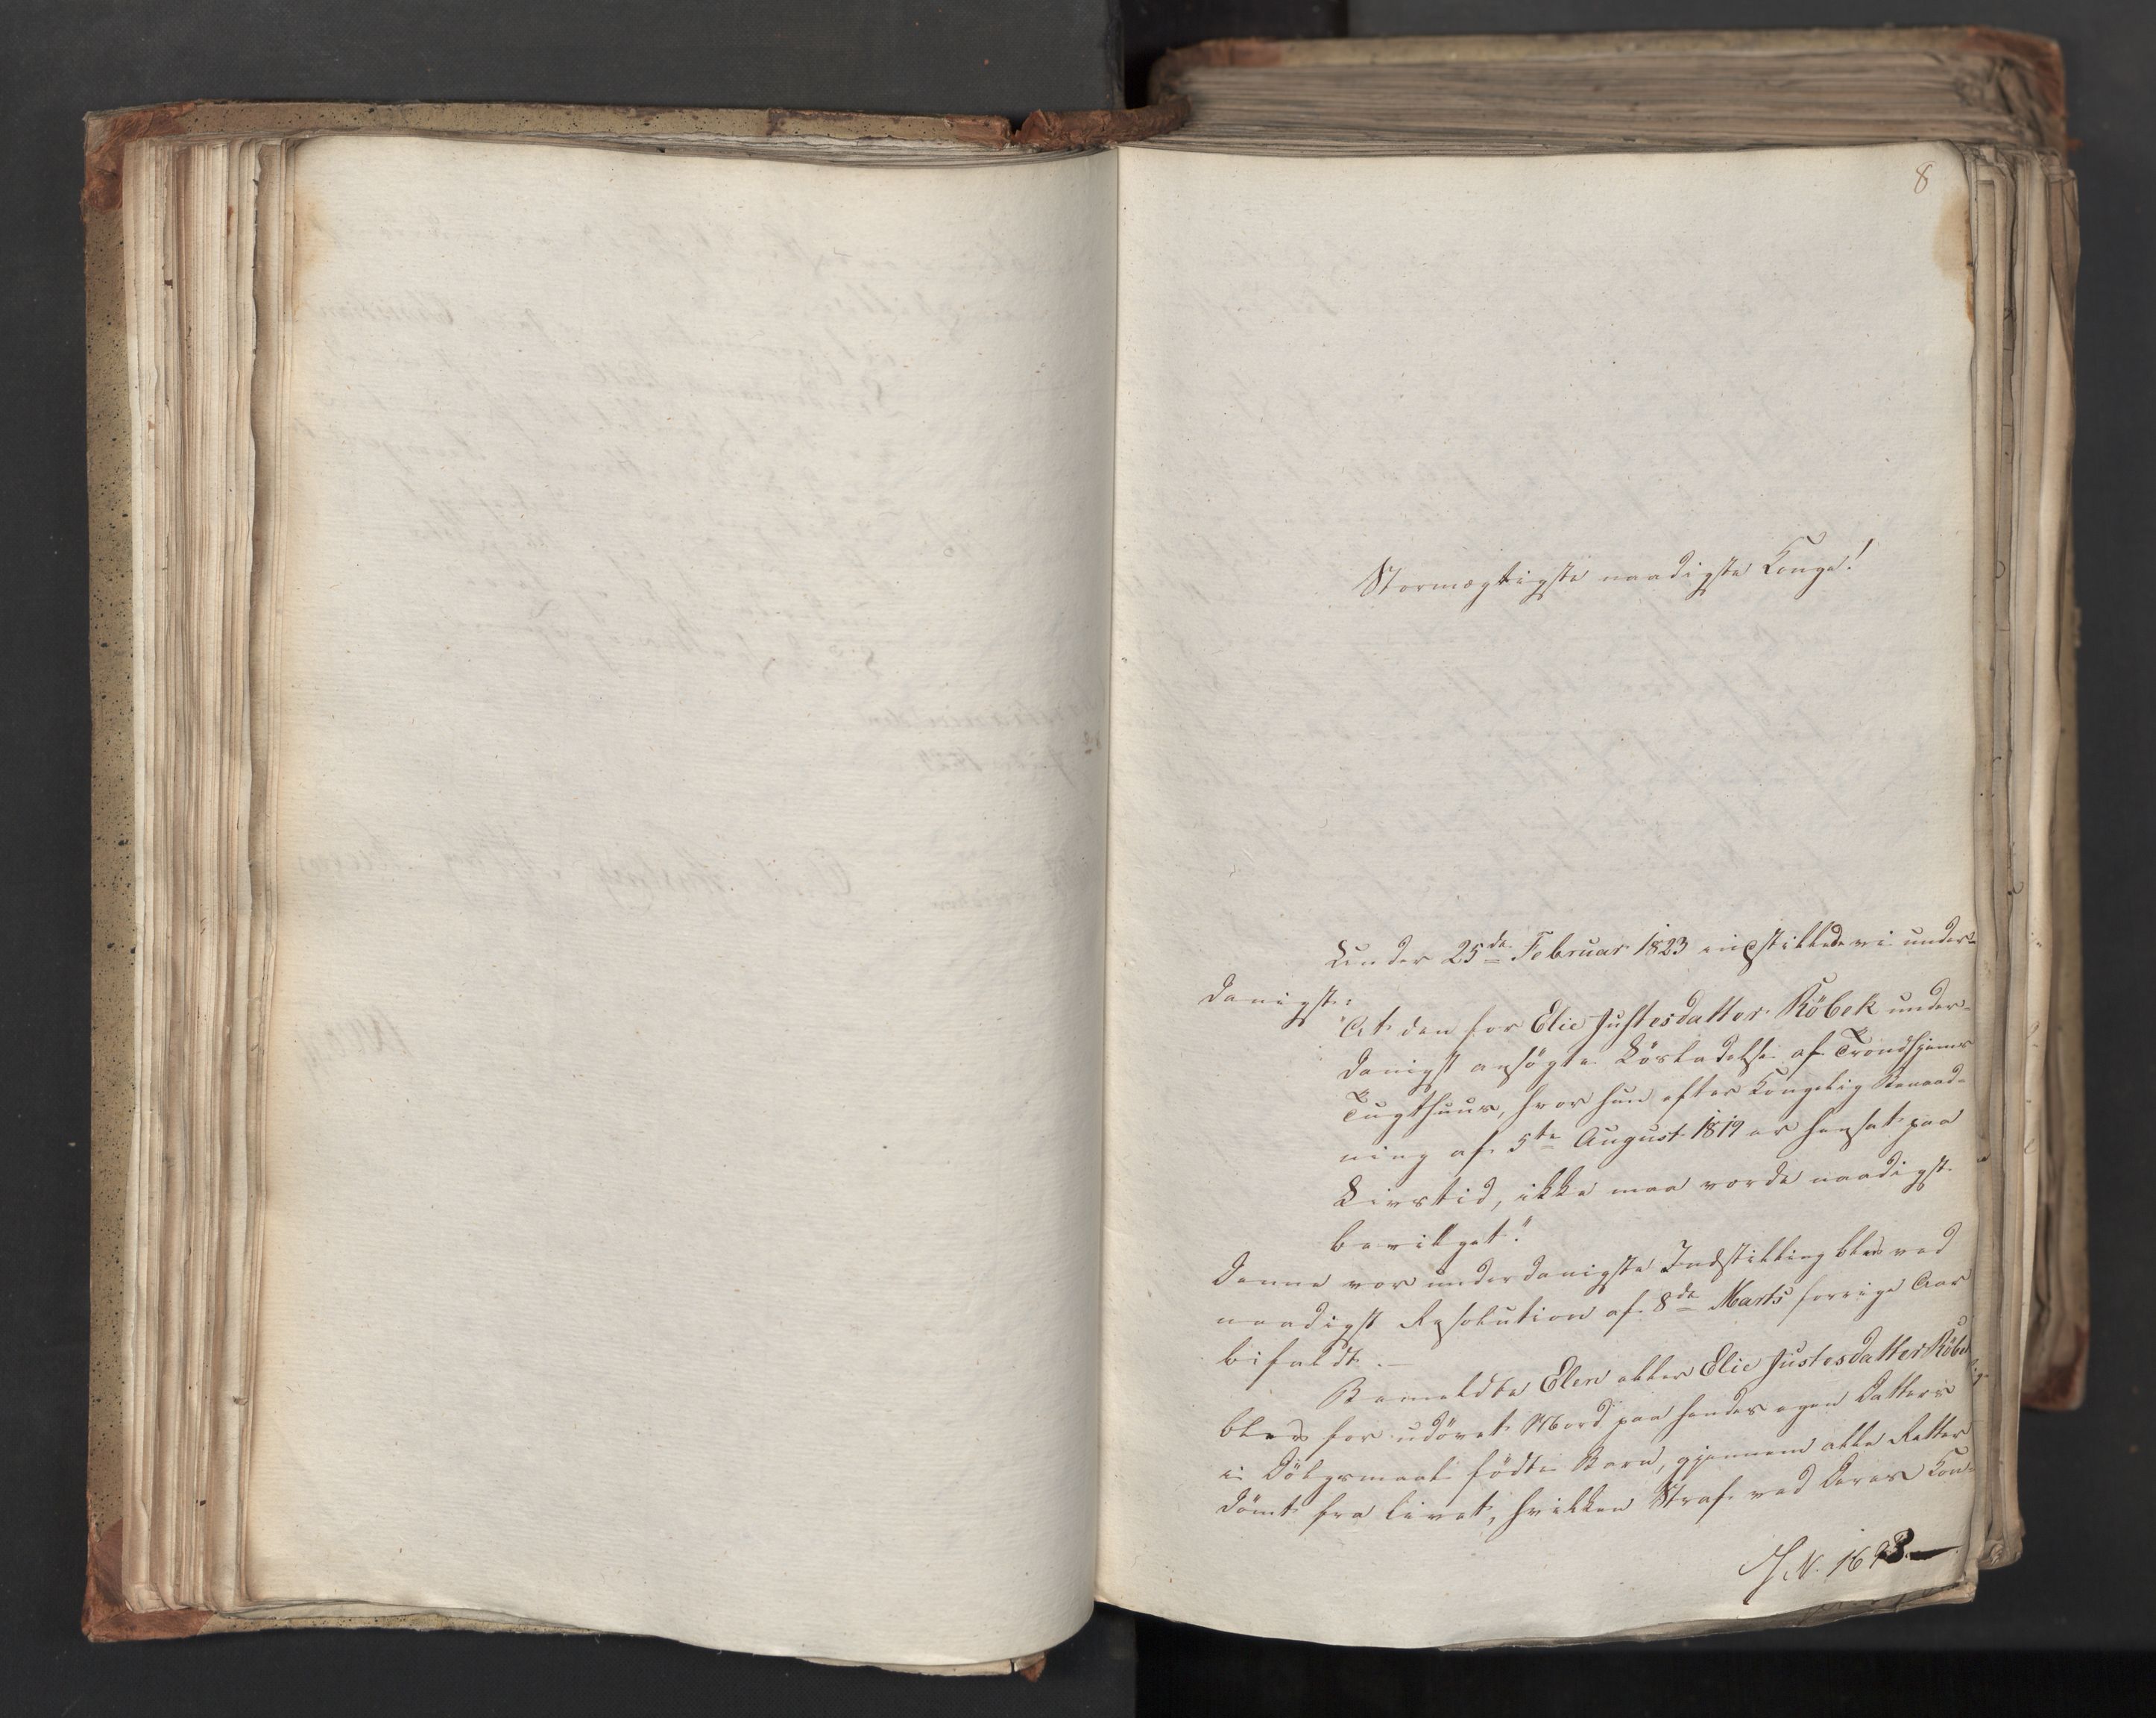 8
Stormægtigste naadigste Konge!
Under 25de Februar 1823 indstillede vi under-
danigst:
"At den for Elie Justesdatter Röbek under-
danigst ansögte Lösladelse af Trondhjems
Tugthuus, hvor hun efter Kongelig Benaad-
ning af 5te August 1819 er hensat paa
Livstid, ikke maa vorde naadigst
bevilget".
Denne vor underdanigste Indstilling blev ved
naadigst Resolution af 8de Marts forrige Aar
bifaldt.—
Bemeldte Elen eller Elie Justesdatter Röbek
blev for udövet Mord paa hendes egen Datters
i Dölgsmaal födte Barn, gjennem alle Retter
dömt fra Livet, hvilken Straf ved Deres Kon-
J.N. 1693.—